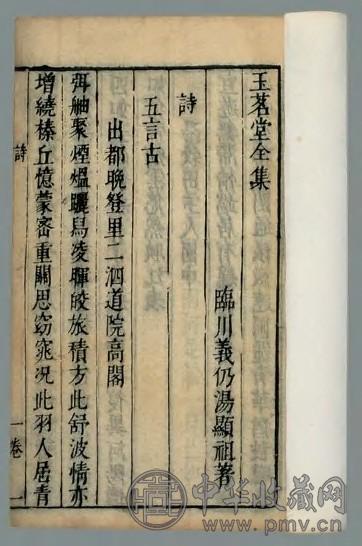 玉茗堂全集
臨川義仍湯顯祖著
詩
五言古
出都晚登里二泗道院高閣
弭舳聚煙熅躧舃凌暉皎旅積方此舒波情亦
增繞榛丘憶蒙密重關思窈窕况此羽人居青
詩
一卷
一
中华收藏网
www.pmv.cn